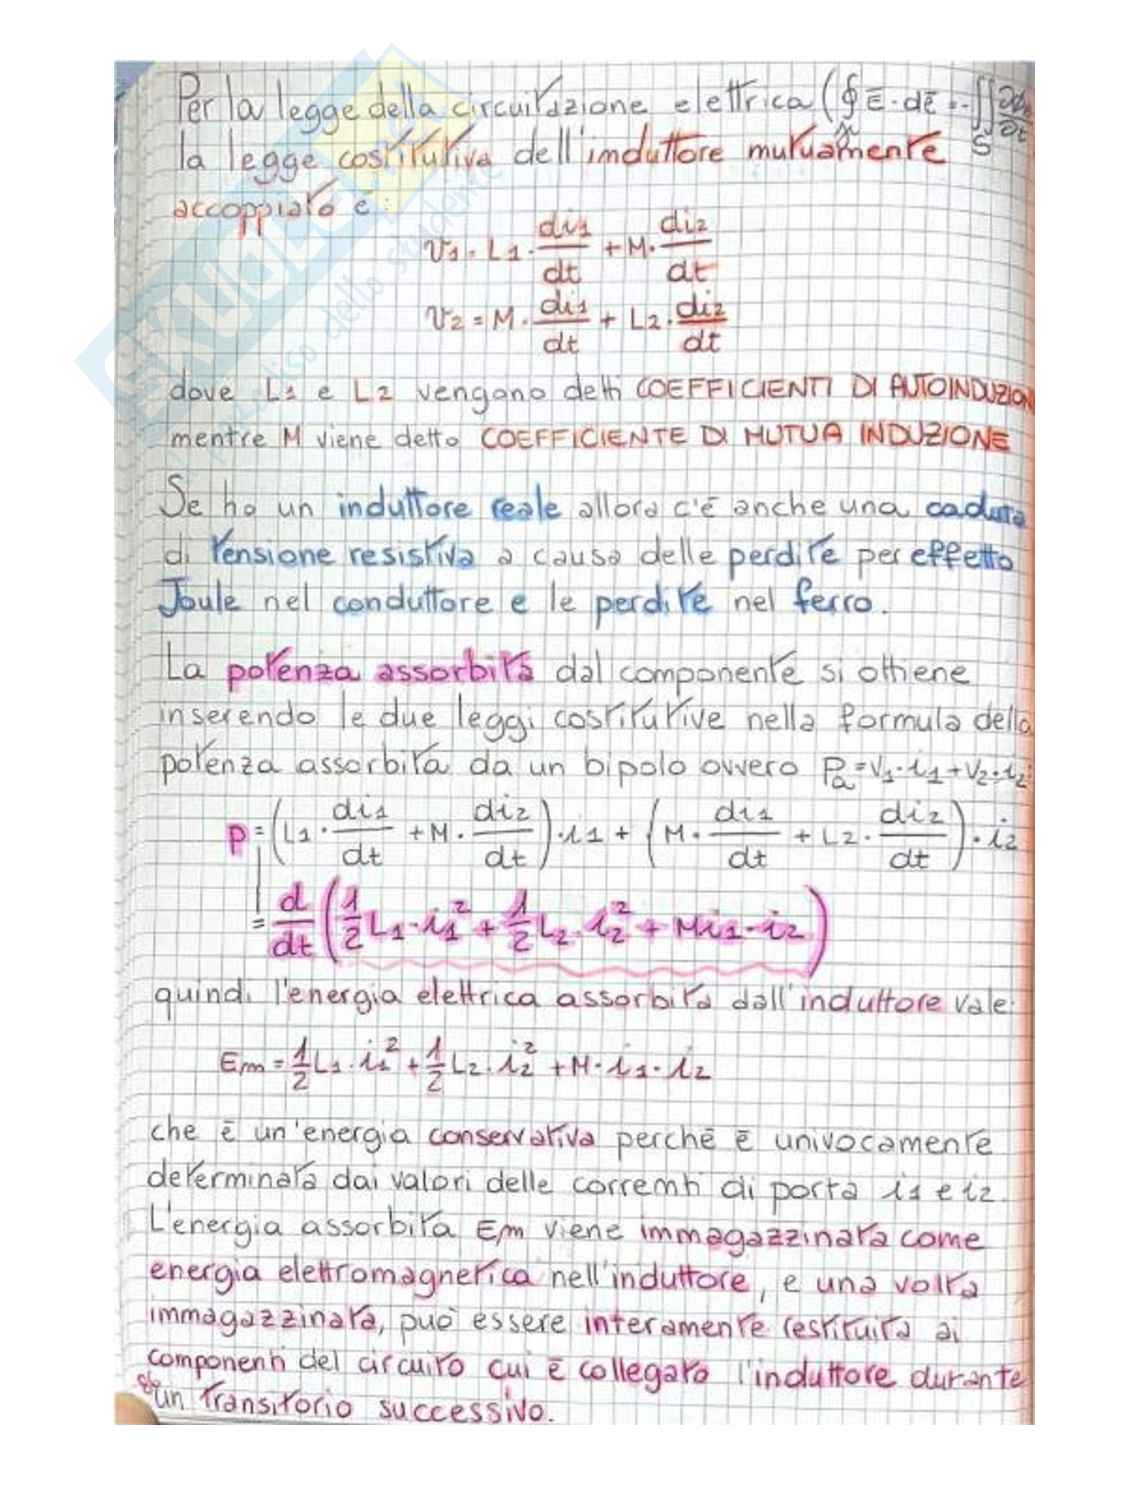 Per la legge della circuitazione elettrica (∮ Ē · dē = -∬
γ S ∂t
la legge costitutiva dell'induttore mutuamente
accoppiato è:
v1 = L1 · di1/dt + M · di2/dt
v2 = M · di1/dt + L2 · di2/dt
dove L1 e L2 vengono detti COEFFICIENTI DI AUTOINDUZION
mentre M viene detto COEFFICIENTE DI MUTUA INDUZIONE
Se ho un induttore reale allora c'è anche una caduta
di tensione resistiva a causa delle perdite per effetto
Joule nel conduttore e le perdite nel ferro.
La potenza assorbita dal componente si ottiene
inserendo le due leggi costitutive nella formula della
potenza assorbita da un bipolo ovvero Pa = v1 · i1 + v2 · i2:
P = (L1 · di1/dt + M · di2/dt) · i1 + (M · di1/dt + L2 · di2/dt) · i2
= d/dt (1/2 L1 · i1² + 1/2 L2 · i2² + M i1 · i2)
quindi l'energia elettrica assorbita dall'induttore vale:
Em = 1/2 L1 · i1² + 1/2 L2 · i2² + M · i1 · i2
che è un'energia conservativa perché è univocamente
determinata dai valori delle correnti di porta i1 e i2.
L'energia assorbita Em viene immagazzinata come
energia elettromagnetica nell'induttore, e una volta
immagazzinata, può essere interamente restituita ai
componenti del circuito cui è collegato l'induttore durante
un transitorio successivo.
SKUOLA
dello studente